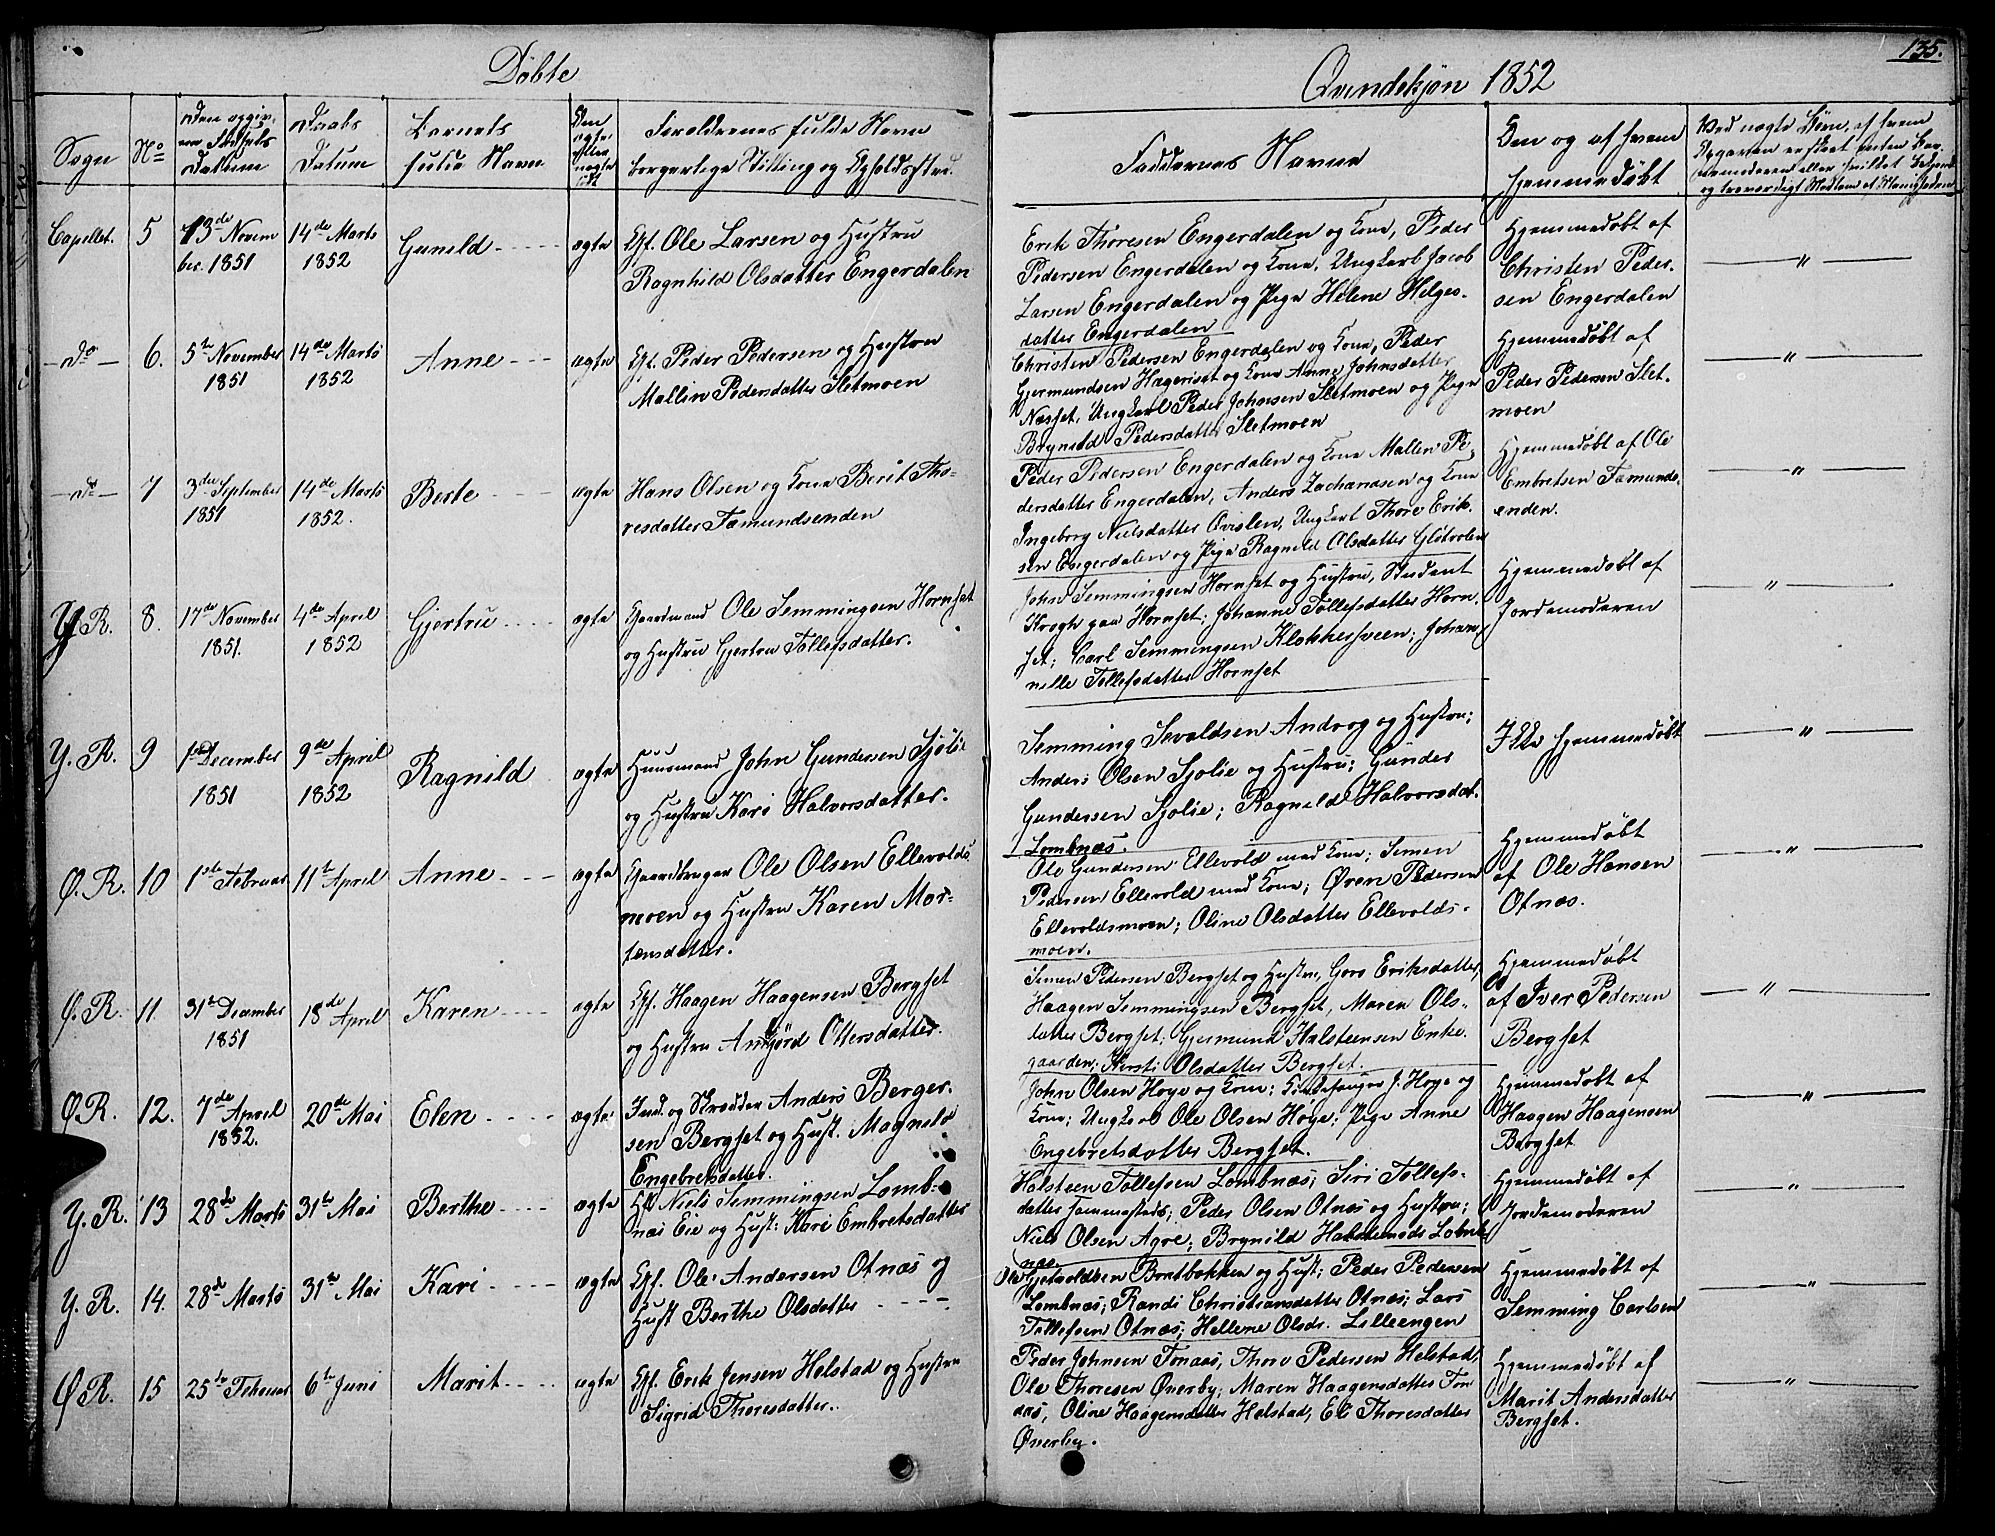 135.
Döbte
Qvindekjön 1852
Sogn
No
Den opgivne Födsels Datum
Daabs Datum
Barnets fulde Navn
Den ægte eller uægte födt
Forældrenes fulde Navn borgerlige Stilling og Opholdssted.
Faddernes Navne
Om og af hvem hjemmedöbt
Capellet. 5 13de Novem ber. 1851 14de Marts 1852 Gunild ægte
Gf. Ole Larsen og Hustru
Ragnhild Olsdatter Engerdalen
Erik Thoresen Engerdalen og Kone, Peder
Pedersen Engerdalen og Kone, Ungkarl Jacob
Larsen Engerdalen og Pige Helene Helges-
datter Engerdalen
Hjemmedöbt af
Christen Peder-
sen Engerdalen
"
do 6. 5te November 1851 14de Marts 1852 Anne ægte
Gf. Peder Pedersen og Hustru
Mallin Pedersdatter Sletmoen
Christen Pedersen Engerdalen og Kone, Peder
Gjermundsen Hageriset og Kone Anne Johnsdatter
Næsset, Ungkarl Peder Johnsen Sletmoen og Pige
Brynild Pedersdatter Sletmoen
Hjemmedöbt af
Peder Pedersen Slet-
moen
"
do 7 3die September 1851 14de Marts 1852. Berte ægte
Hans Olsen og Kone Berit Tho-
resdatter Fæmundsenden
Peder Pedersen Engerdalen og Kone Mallen Pe-
dersdatter Engerdalen, Anders Zachariasen og Kone
Ingeborg Nielsdatter Qvislen, Ungkarl Thore Erik-
sen Engerdalen og Pige Ragnild Olsdatter Glötvolen
Hjemmedöbt af Ole
Embretsen Fæmunds-
enden.
"
Y. R. 8. 17de November 1851. 4de April 1852 Gjertru ægte
Gaardmand Ole Semmingsen Hornset
og Hustru Gjertru Tollefsdatter.
John Semmingsen Hornset og Hustru, Student
Krogh paa Hornset; Johanne Tollefsdatter Horn-
set; Carl Semmingsen Klokkersveen; Johan-
nille Tollefsdatter Hornset
Hjemmedöbt af
Jordemoderen
"
Y. R. 9 1ste December 1851 9de April 1852 Ragnild ægte
Huusmand John Gundersen Sjölie
og Hustru Kari Halvorsdatter.
Semming Sevaldsen Andvog og Hustru;
Anders Olsen Sjolie og Hustru; Gunder
Gundersen Sjolie; Ragnild Halvorsdat.
Lombnæs.
Ikke hjemmedöbt
"
Ø. R. 10 1ste Februar 11te April Anne ægte
Gaardbruger Ole Olsen Ellevolds
moen og Hustru Karen Mor-
tensdatter.
Ole Gundersen Ellevold med Kone; Simen
Pedersen Ellevold med Kone; Øven Pedersen
Ellevoldsmoen; Oline Olsdatter Ellevolds-
moen.
Hjemmedöbt
af Ole Hansen
Otnæs.
"
Ø. R. 11. 31te December 1851 18de April Karen ægte
Gf. Haagen Haagensen Bergset
og Hustru Anjörd Ottersdatter.
Simen Pedersen Bergset og Hustru, Goro Eriksdatter,
Haagen Semmingsen Bergset, Maren Ols-
datter Bergset; Gjermund Halsteensen Enke-
gaarden; Kersti Olsdatter Bergset.
Hjemmedöbt
af Iver Pedersen
Bergset
"
Ø R. 12. 7de April 1852. 20de Mai Elen ægte
Ind. og Skrædder Anders Berger-
sen Bergset og Hust. Magnild
Engebretsdatter.
John Olsen Hoye og Kone; Kirkesanger J. Hoye og
Kone; Ungkarl Ole Olsen Höye; Pige Anne
Engebretsdatter Bergset.
Hjemmedöbt af
Haagen Haagensen
Bergset
"
Y. R. 13 28de Marts 31te Mai Berthe ægte
Niels Semmingsen Lomb-
næs Eie og Hust: Kari Embretsdatter
Halsteen Tollefsen Lombnæs; Siri Tollefs-
datter sammesteds; Peder Olsen Otnæs og Hustru;
Niels Olsen Agre; Brynild Lomb-
næs.
Hjemmedöbt af
Jordemoderen
"
Y. R. 14. 28de Marts 31te Mai Kari ægte
Gf. Ole Andersen Otnæs og
Hust Berthe Olsdatter
Ole Bratbakken og Hust; Peder Pedersen
Lombnæs; Randi Christiansdatter Otnæs; Lars
Tollefsen Otnæs; Hellene Olsdr. Lilleengen
Hjemmedöbt af
Semming Carlsen
"
Ø R. 15 25de Februar 6te Juni Marit ægte
Gf. Erik Jensen Helstad og Hustru
Sigrid Thoresdatter.
Peder Johnsen Fonaas, Thore Pedersen Helstad,
Ole Thoresen Øverby; Maren Haagensdatter Fon
aas, Oline Haagensdatter Helstad, Eli Thoresdatter
Øverby.
Hjemmedöbt af
Marit Andersdatter
Bergset.
"